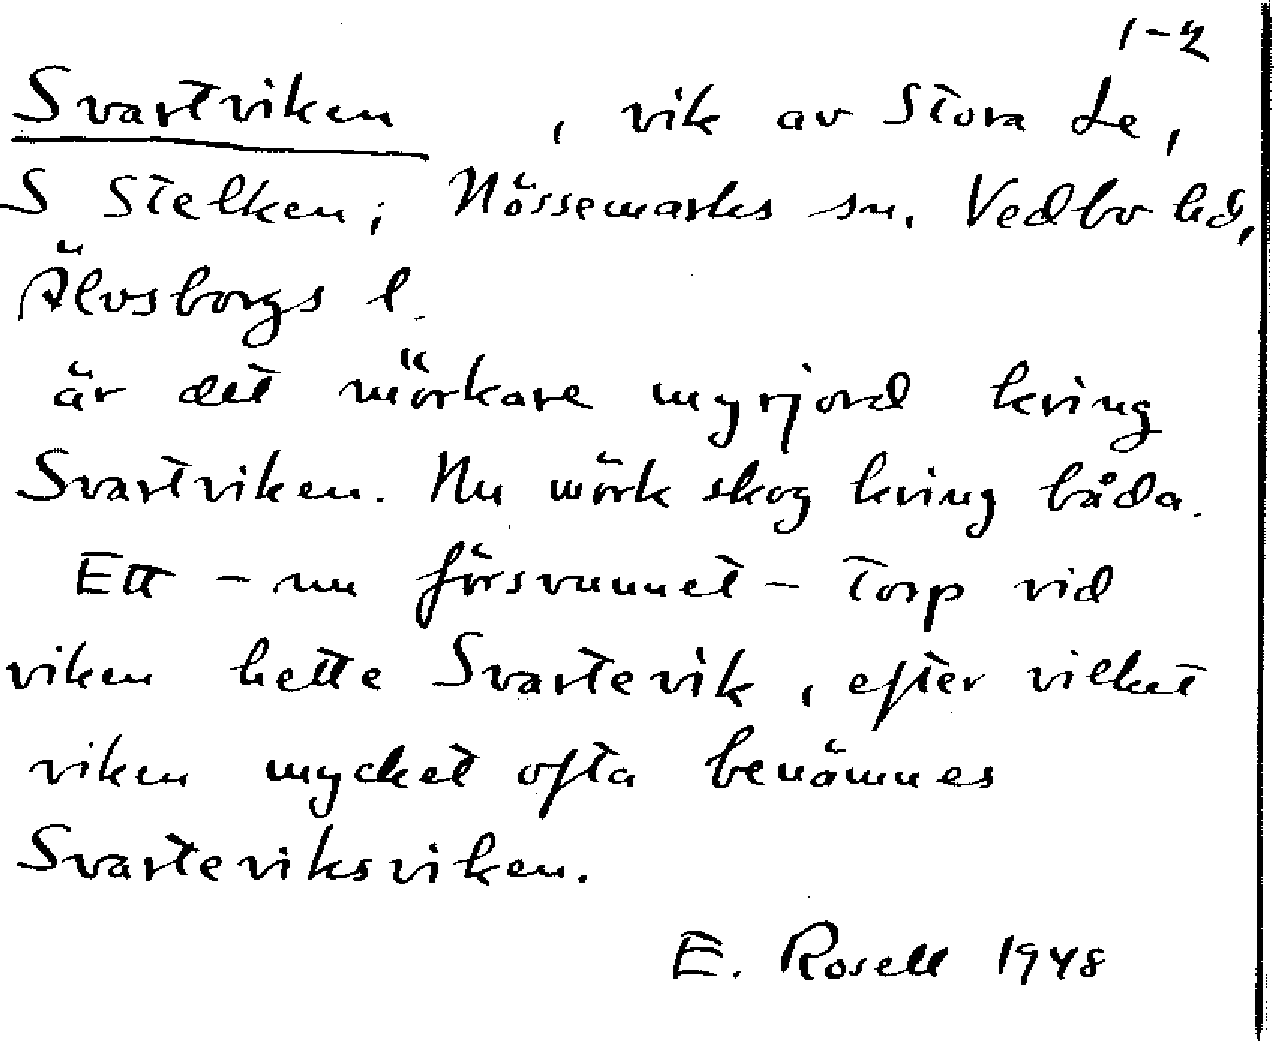 1-2
Svartviken , vik av Stora Le,
S Stelken; Nössemarks sn. Vedbo hd,
Älvsborgs l.
är det mörkare myrjord kring
Svartviken. Nu mörk skog kring båda.
Ett - nu försvunnet - torp vid
viken hette Svartevik, efter vilket
viken mycket ofta benämnes
Svarteviksviken.
E. Rosell 1948